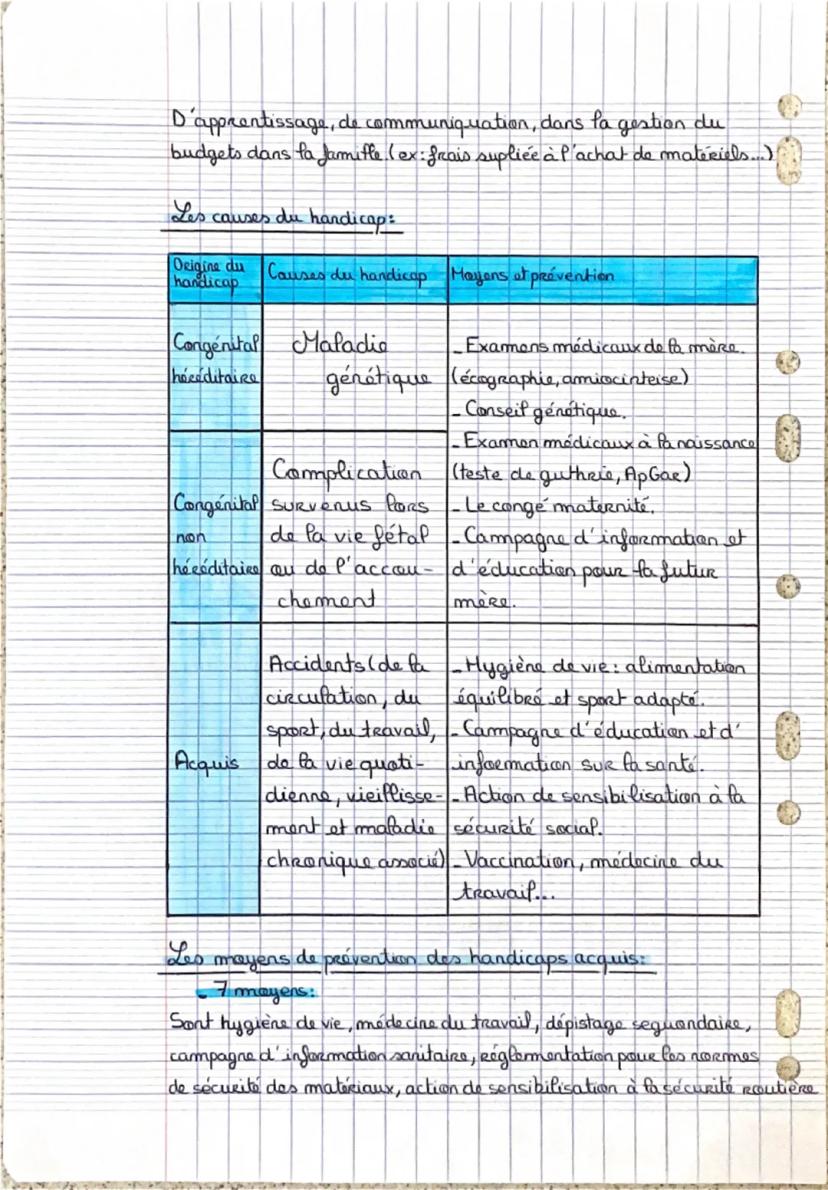 D'apprentissage, de communiquation, dans la gestion du
budgets dans la famille (ex: frais supliée à l'achat de matériels...)
Les causes du handicap:
Origine du
handicap
Causes du handicap
Moyens et prévention
Congénital
héréditaire
Maladie
génétique
- Examens médicaux de la mère.
(écographie, amiocinteise)
- Conseil génétique.
- Examen médicaux à la naissance
(teste de guthrie, ApGar)
- Le congé maternité.
- Campagne d'information et
d'éducation pour la futur
mère.
Congénital
non
héréditaire
Complication
survenus lors
de la vie fétal
ou de l'accou-
chement
Acquis
Accidents (de la
circulation, du
sport, du travail,
de la vie quoti-
dienne, vieillisse-
ment et maladie
chronique associé)
- Hygiène de vie: alimentation
équilibré et sport adapté.
- Campagne d'éducation et d'
information sur la santé.
- Action de sensibilisation à la
sécurité social.
- Vaccination, médecine du
travail...
Les moyens de prévention des handicaps acquis:
- 7 moyens:
Sont hygiène de vie, médecine du travail, dépistage seguondaire,
campagne d'information sanitaire, réglementation pour les normes
de sécurité des matériaux, action de sensibilisation à la sécurité routière